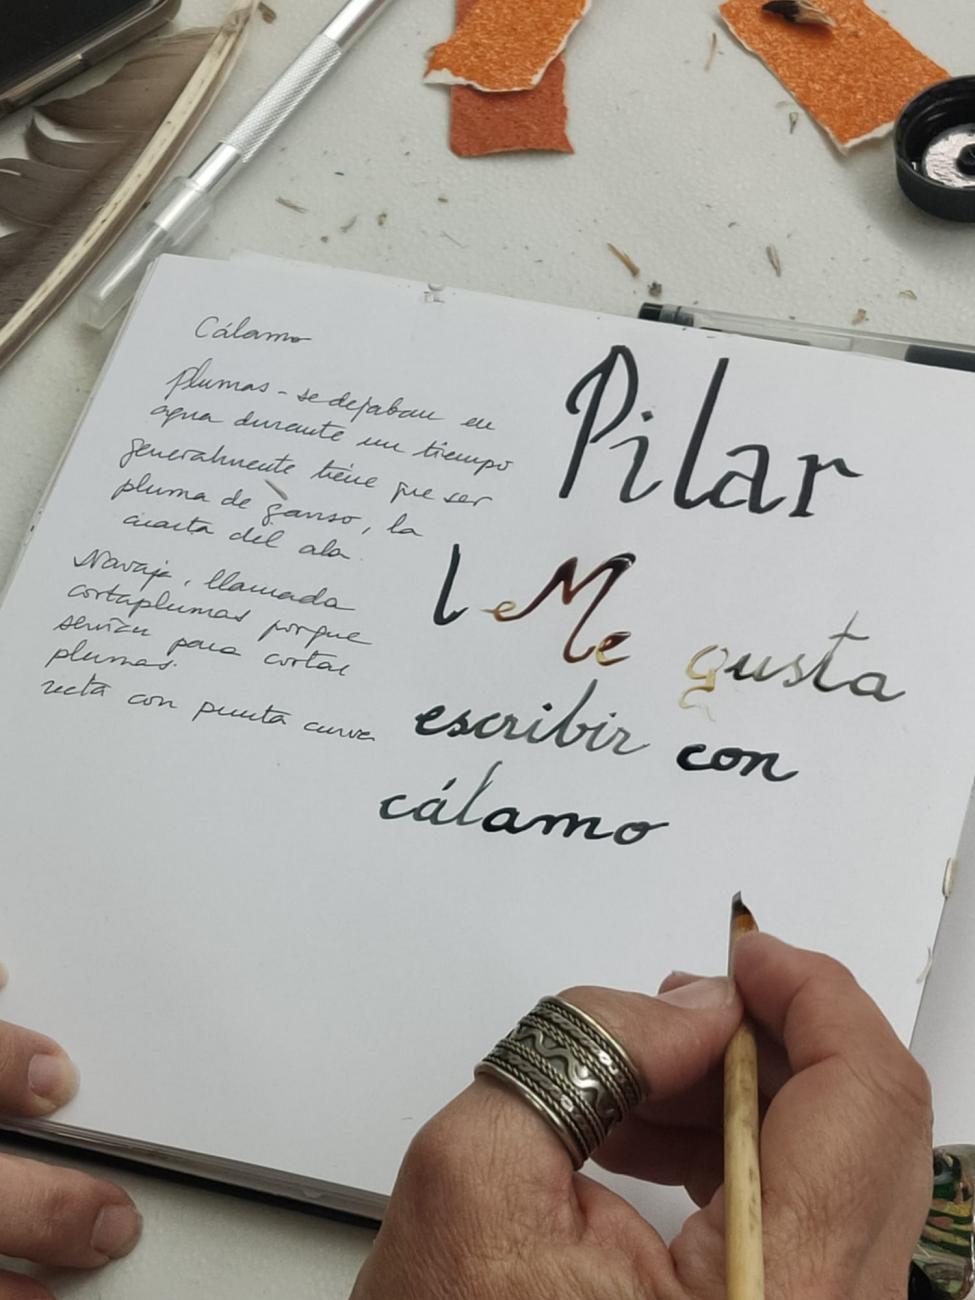 Cálamo
plumas - se dejaban en
agua durante un tiempo
generalmente tiene que ser
pluma de ganso, la
cuarta del ala.
Navaja, llamada
cortaplumas porque
servían para cortar
plumas.
recta con punta curva
Pilar
l e Me gusta
escribir con
cálamo